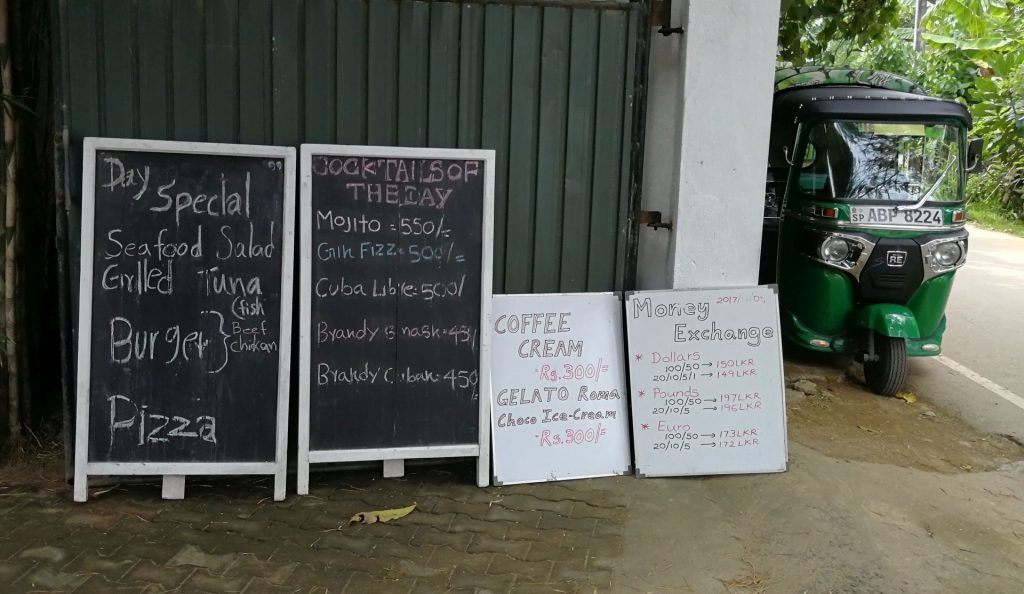 Day
Special
Seafood Salad
Grilled Tuna
Burger
(fish
Beef
Chickan
Pizza
COCKTAILS OF
THE DAY
Mojito = 550/=
Gin Fizz = 500/=
Cuba Libre = 500/
Brandy
Brandy Cuban = 450
COFFEE
CREAM
Rs.300/=
GELATO Roma
Choco Ice-Cream
Rs.300/=
Money 2017
Exchange
* Dollars
100/50 → 150LKR
20/10/5/1 → 149LKR
* Pounds
100/50 → 197LKR
20/10/5 → 196LKR
* Euro
100/50 → 173LKR
20/10/5 → 172LKR
SP ABP 8224
RE